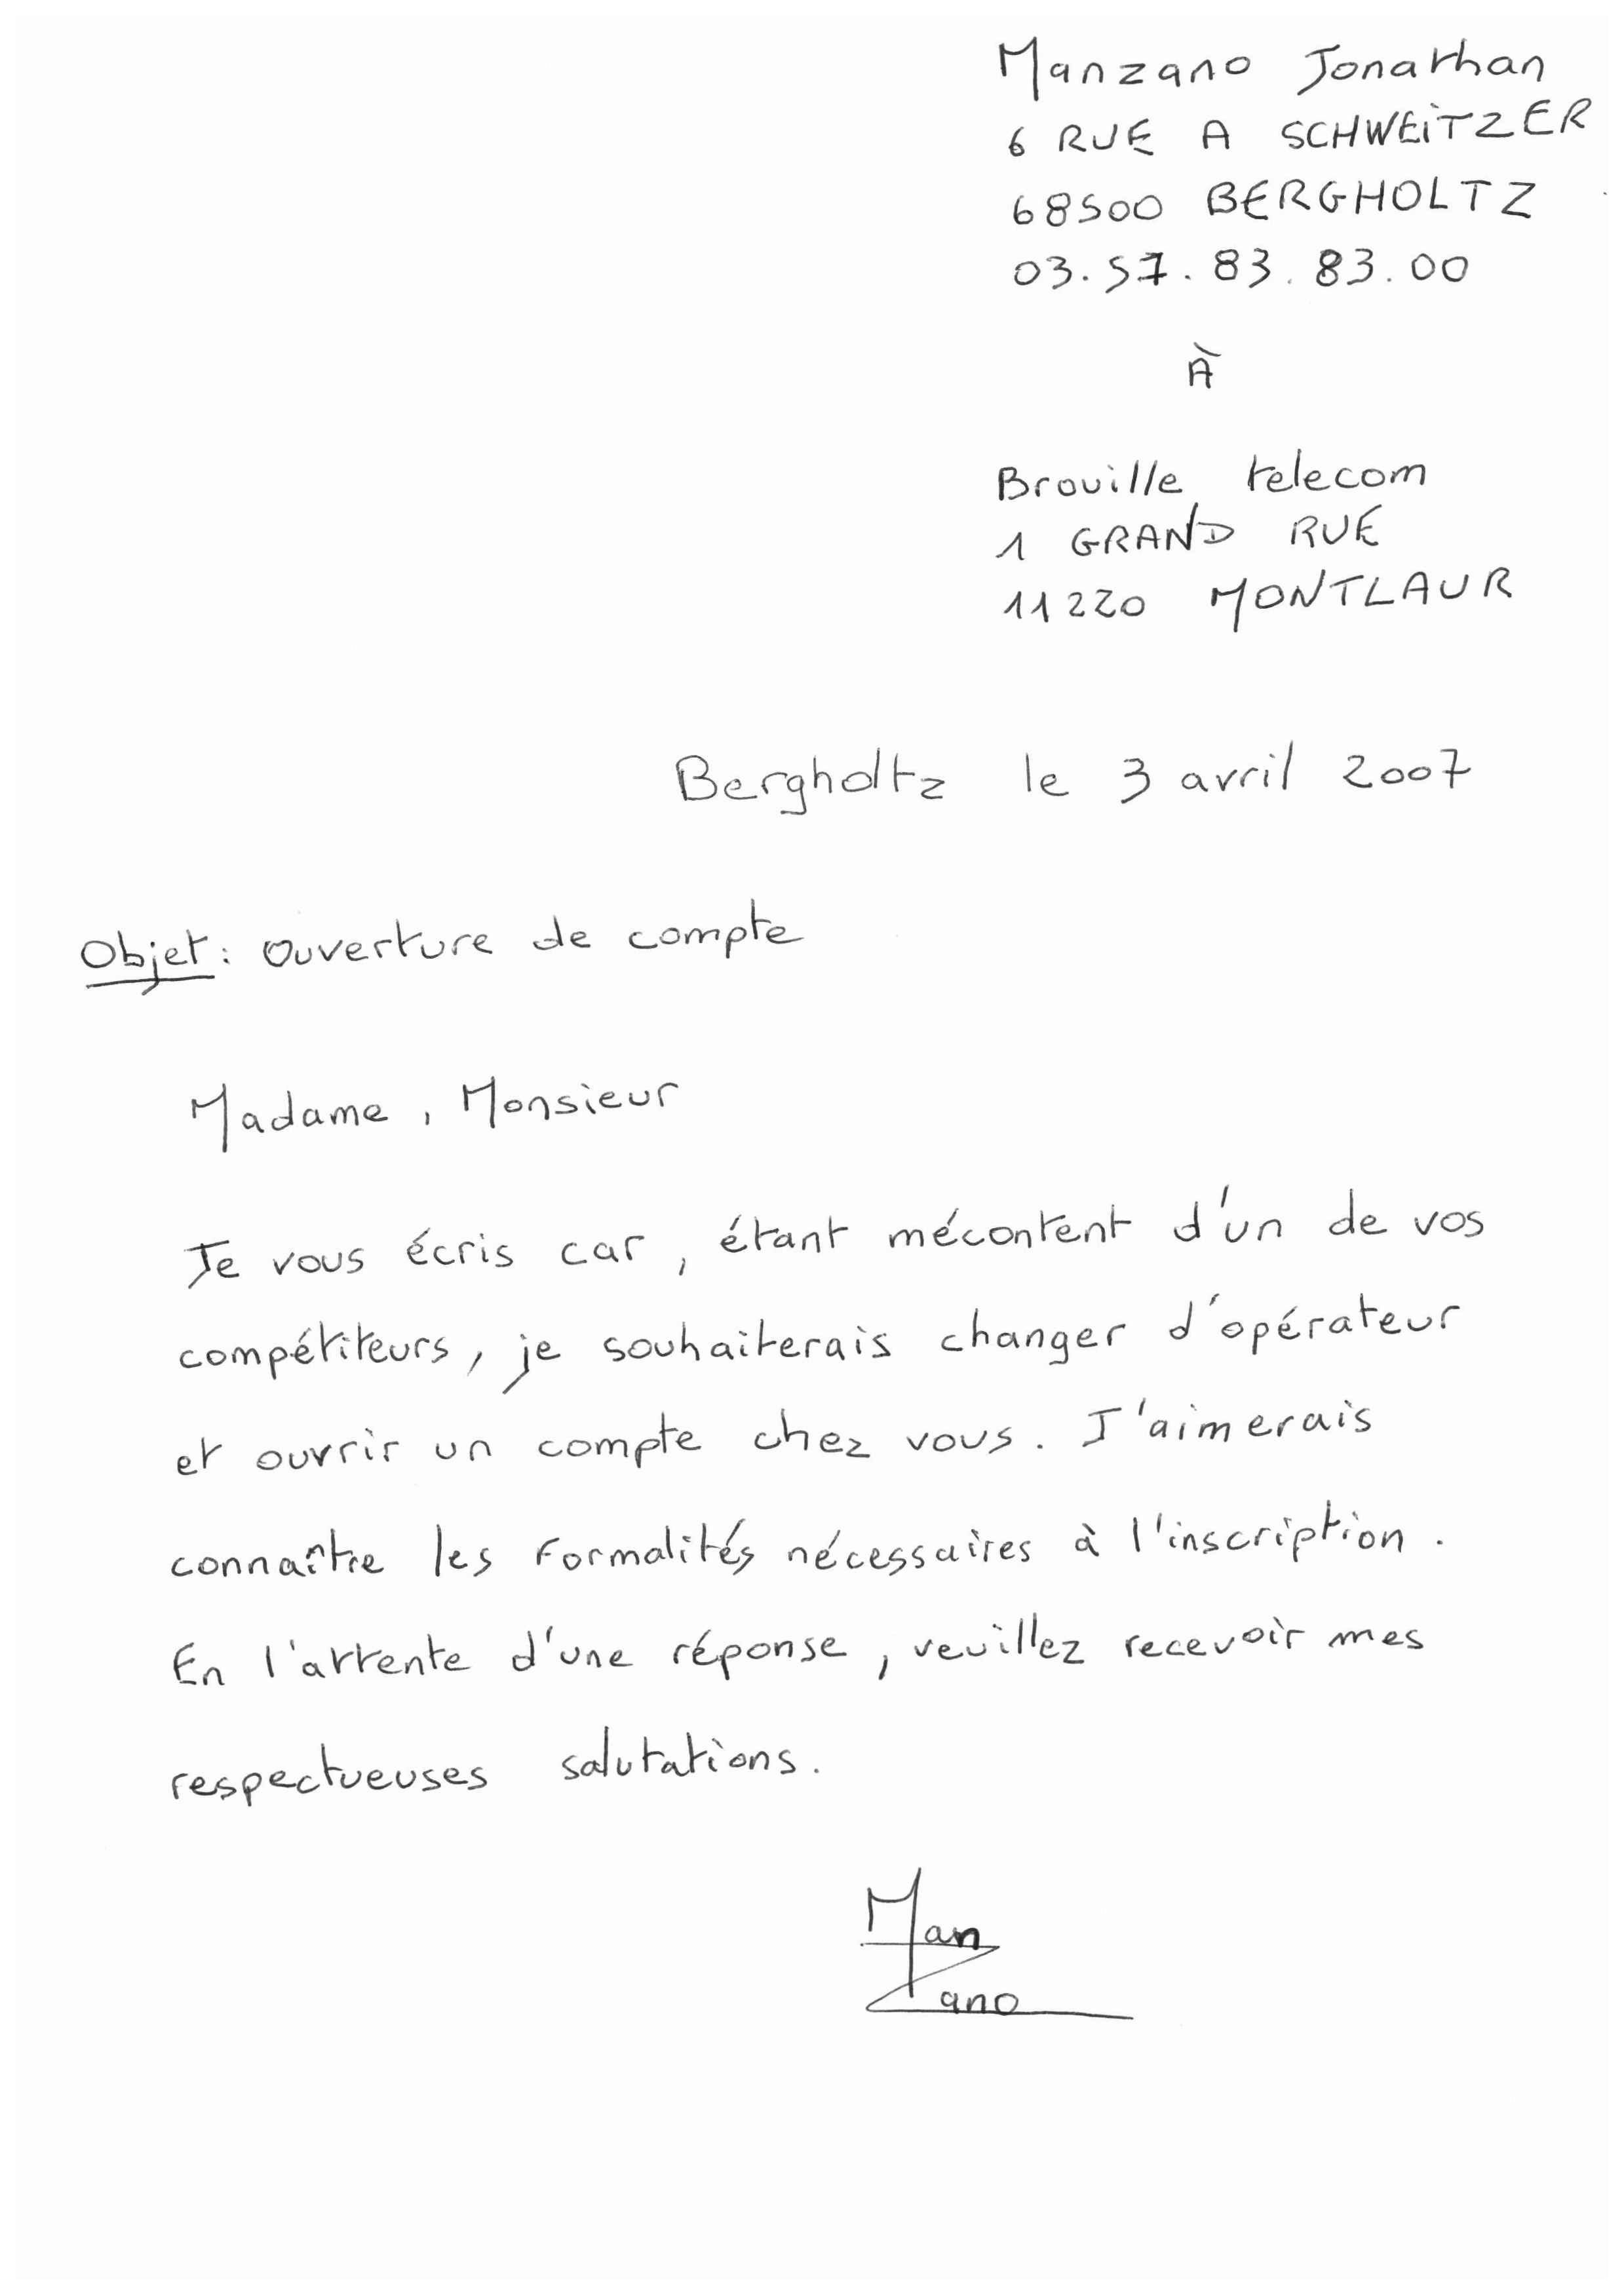 Manzano Jonathan
6 RUE A SCHWEITZER
68500 BERGHOLTZ
03.57.83.83.00
À
Brouille telecom
1 GRAND RUE
11220 MONTLAUR
Bergholtz le 3 avril 2007
Objet : Ouverture de compte
Madame, Monsieur
Je vous écris car, étant mécontent d'un de vos
compétiteurs, je souhaiterais changer d'opérateur
et ouvrir un compte chez vous. J'aimerais
connaître les formalités nécessaires à l'inscription.
En l'attente d'une réponse, veuillez recevoir mes
respectueuses salutations.
Man
Zano